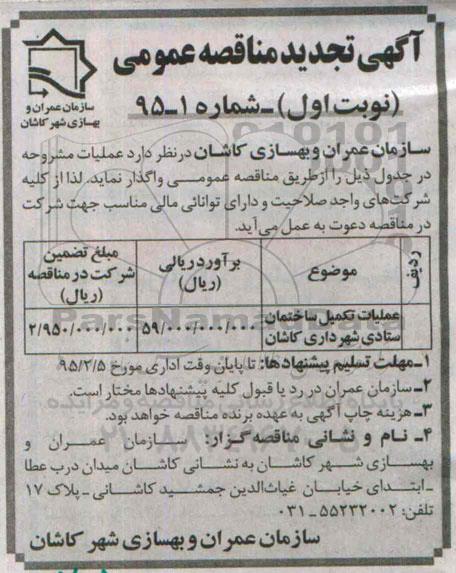 آگهی تجدید مناقصه عمومی
(نوبت اول) ـ شماره ۱ـ۹۵
سازمان عمران و
بهسازی شهر کاشان
سازمان عمران و بهسازی کاشان در نظر دارد عملیات مشروحه
در جدول ذیل را از طریق مناقصه عمومی واگذار نماید، لذا از کلیه
شرکت‌های واجد صلاحیت و دارای توانائی مالی مناسب جهت شرکت
در مناقصه دعوت به عمل می‌آید.
ردیف
موضوع
برآورد ریالی
(ریال)
مبلغ تضمین
شرکت در مناقصه
(ریال)
عملیات تکمیل ساختمان
ستادی شهرداری کاشان
۵۹/۰۰۰/۰۰۰/۰۰۰
۲/۹۵۰/۰۰۰/۰۰۰
۱ـ مهلت تسلیم پیشنهادها: تا پایان وقت اداری مورخ ۹۵/۲/۵
۲ـ سازمان عمران در رد یا قبول کلیه پیشنهادها مختار است.
۳ـ هزینه چاپ آگهی به عهده برنده مناقصه خواهد بود.
۴ـ نام و نشانی مناقصه‌گزار: سازمان عمران و
بهسازی شهر کاشان به نشانی کاشان میدان درب عطا
ـ ابتدای خیابان غیاث‌الدین جمشید کاشانی ـ پلاک ۱۷
تلفن: ۵۵۲۳۲۰۰۲ ـ ۰۳۱
سازمان عمران و بهسازی شهر کاشان
ParsNamadData